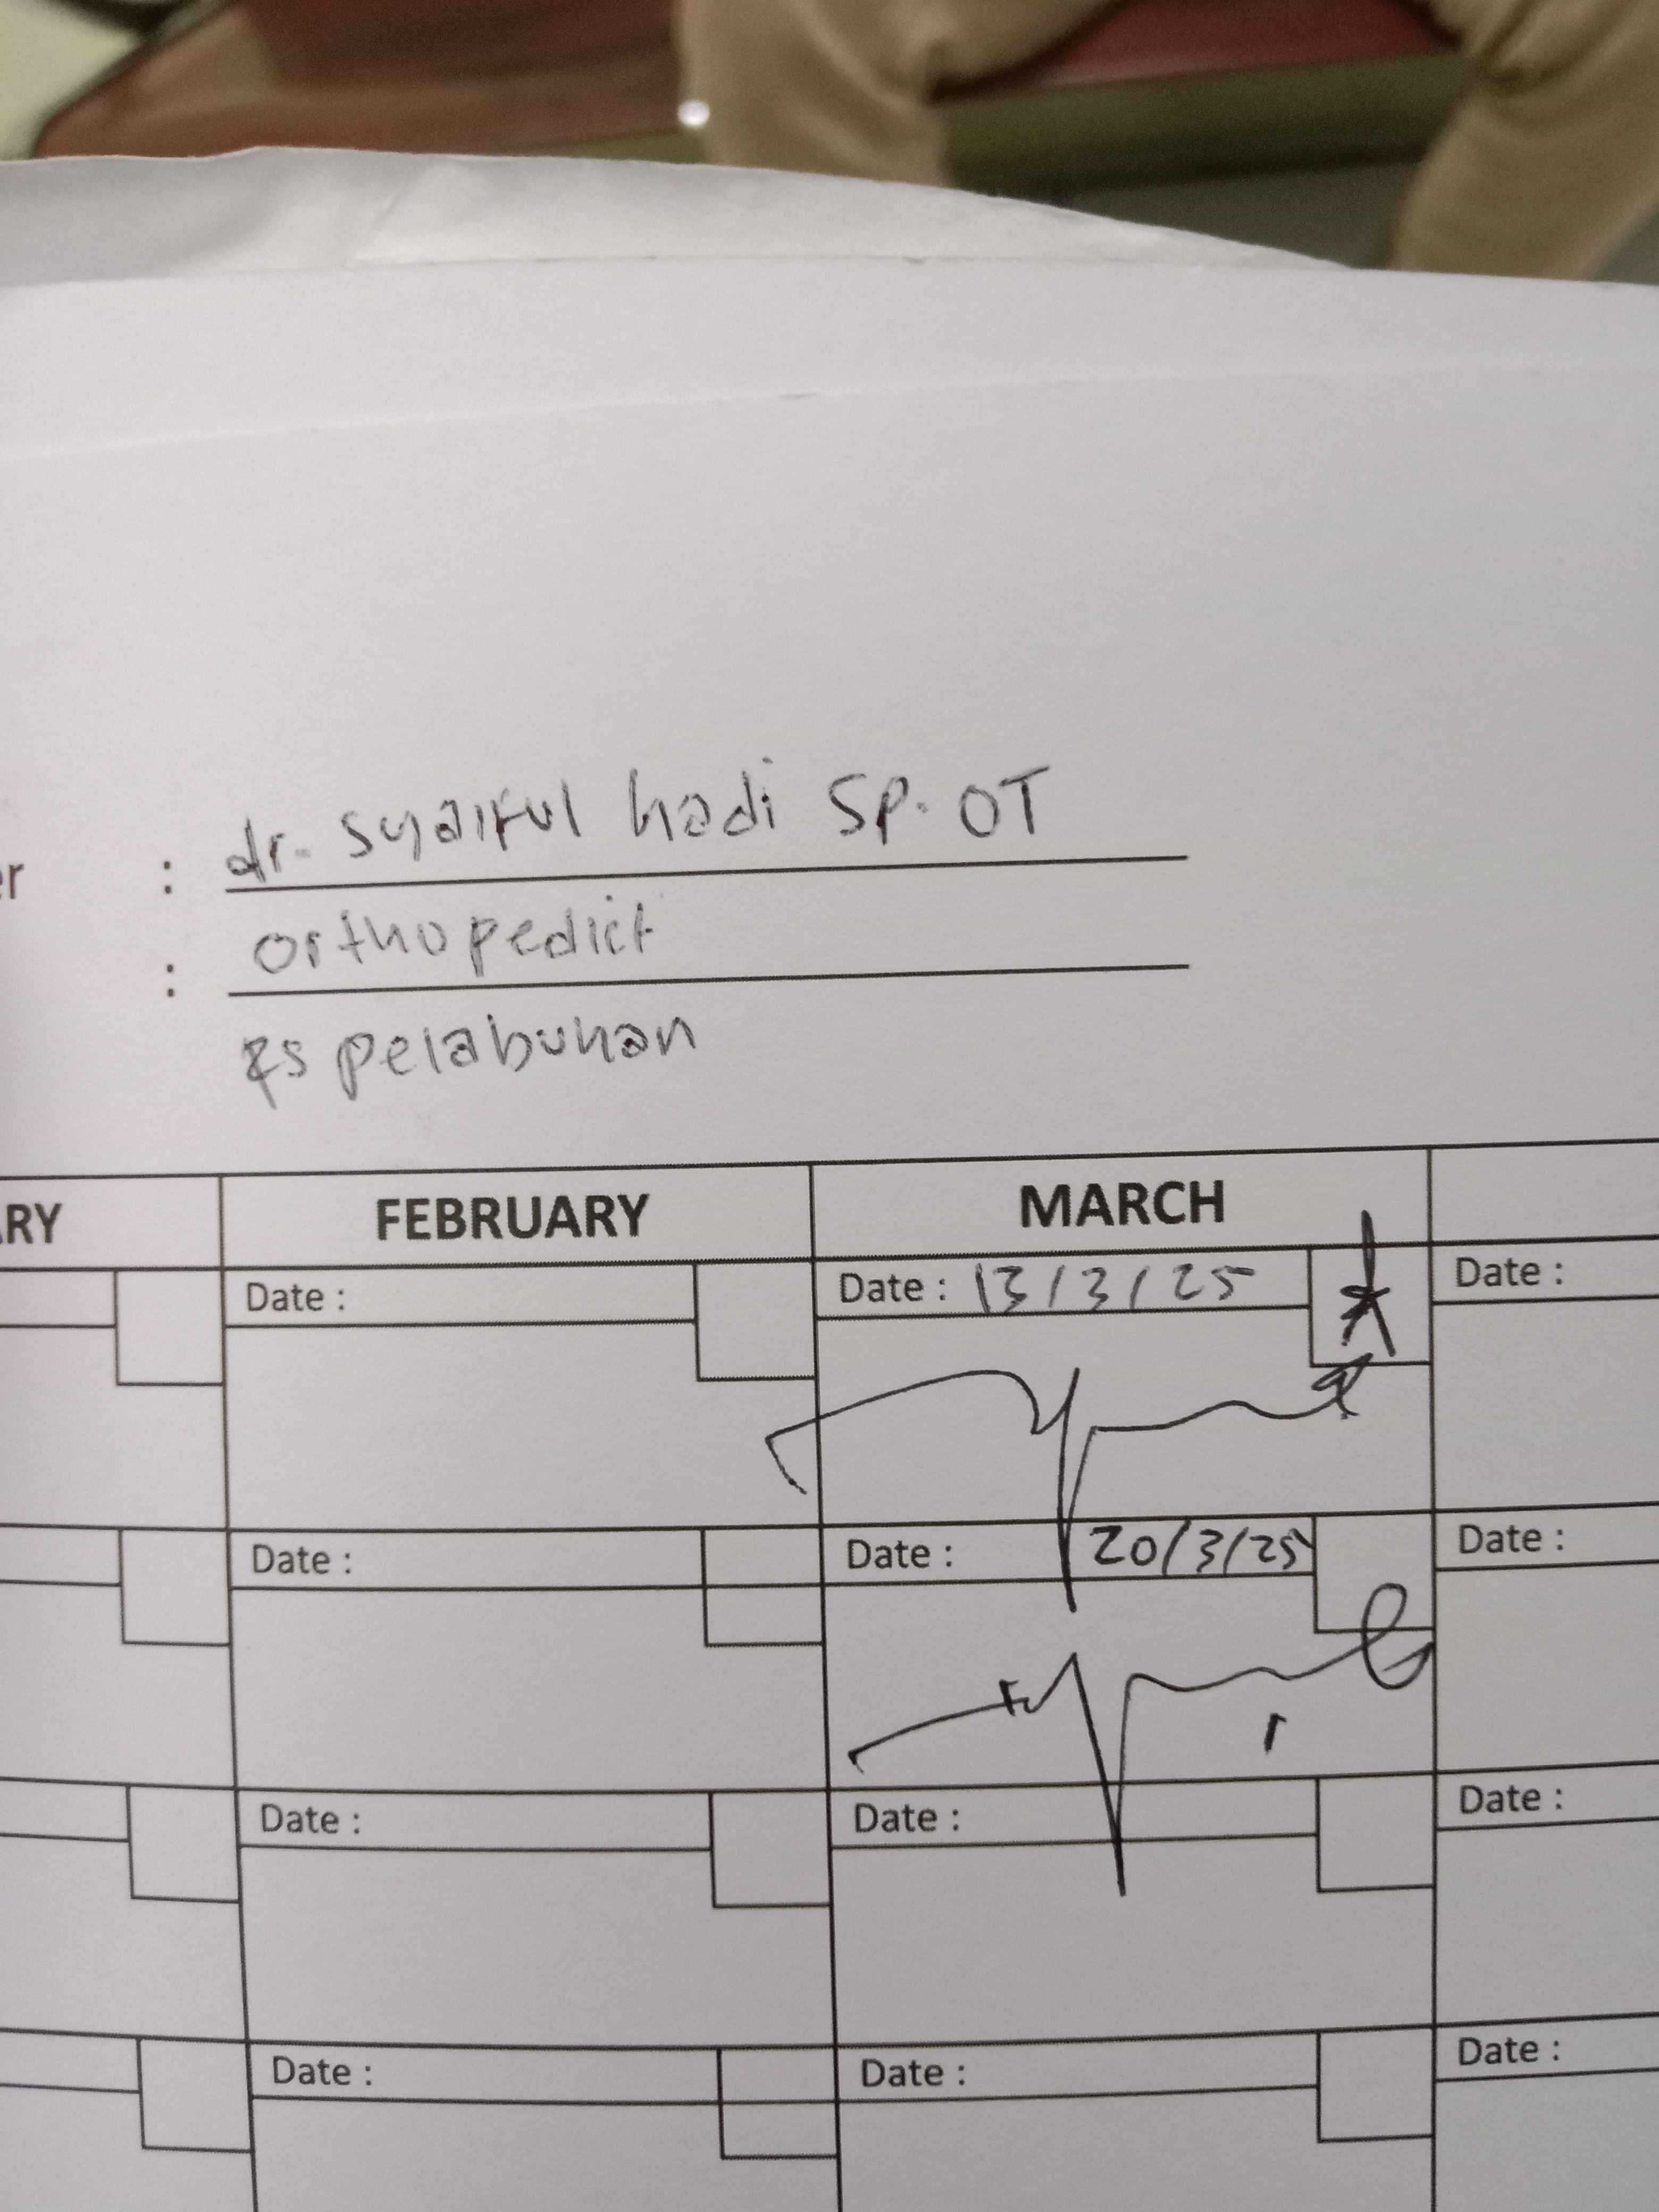 er : dr. Syaiful hadi SP. OT
: orthopedict
RS pelabuhan
ARY FEBRUARY MARCH
Date : Date : 13/3/25 Date :
Date : Date : 20/3/25 Date :
Date : Date : Date :
Date : Date : Date :